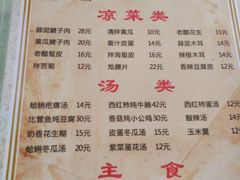 凉菜类
蒜泥腱子肉 28元 清拌黄瓜 10元 老醋花生 15元
黄瓜腱子肉 20元 姜汁皮蛋 14元 蒜泥木耳 14元
老醋蜇皮 16元 拌海蜇皮 16元 老醋木耳 14元
拌苦菊 12元 炝腰片 22元 香辣豆腐皮 12元
汤类
蛤蜊疙瘩汤 14元 西红柿炖牛腩 42元 西红柿蛋汤 12元
比管鱼炖豆腐 30元 香菇炖小公鸡 30元 酸辣汤 14元
奶香花生糊 15元 皮蛋冬瓜汤 20元 玉米羹 12元
蛤蜊冬瓜汤 20元 紫菜蛋花汤 12元
主食